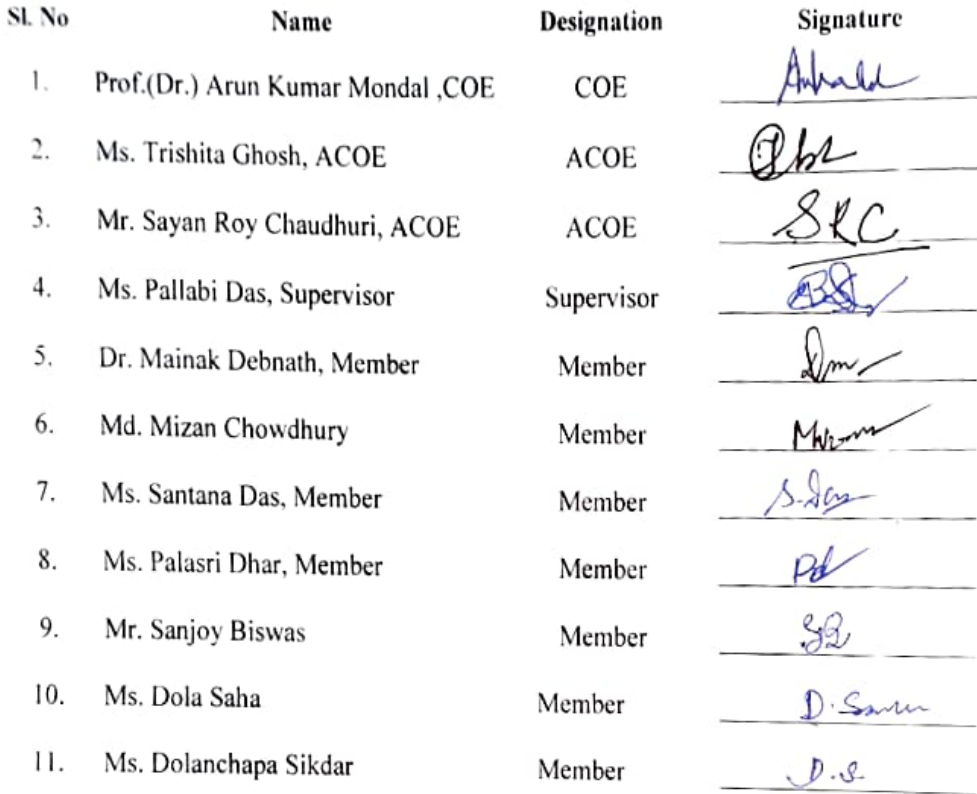 Sl. No Name Designation Signature
1. Prof.(Dr.) Arun Kumar Mondal ,COE COE
2. Ms. Trishita Ghosh, ACOE ACOE
3. Mr. Sayan Roy Chaudhuri, ACOE ACOE SRC
4. Ms. Pallabi Das, Supervisor Supervisor
5. Dr. Mainak Debnath, Member Member
6. Md. Mizan Chowdhury Member
7. Ms. Santana Das, Member Member S. Das
8. Ms. Palasri Dhar, Member Member
9. Mr. Sanjoy Biswas Member
10. Ms. Dola Saha Member
11. Ms. Dolanchapa Sikdar Member D.S.